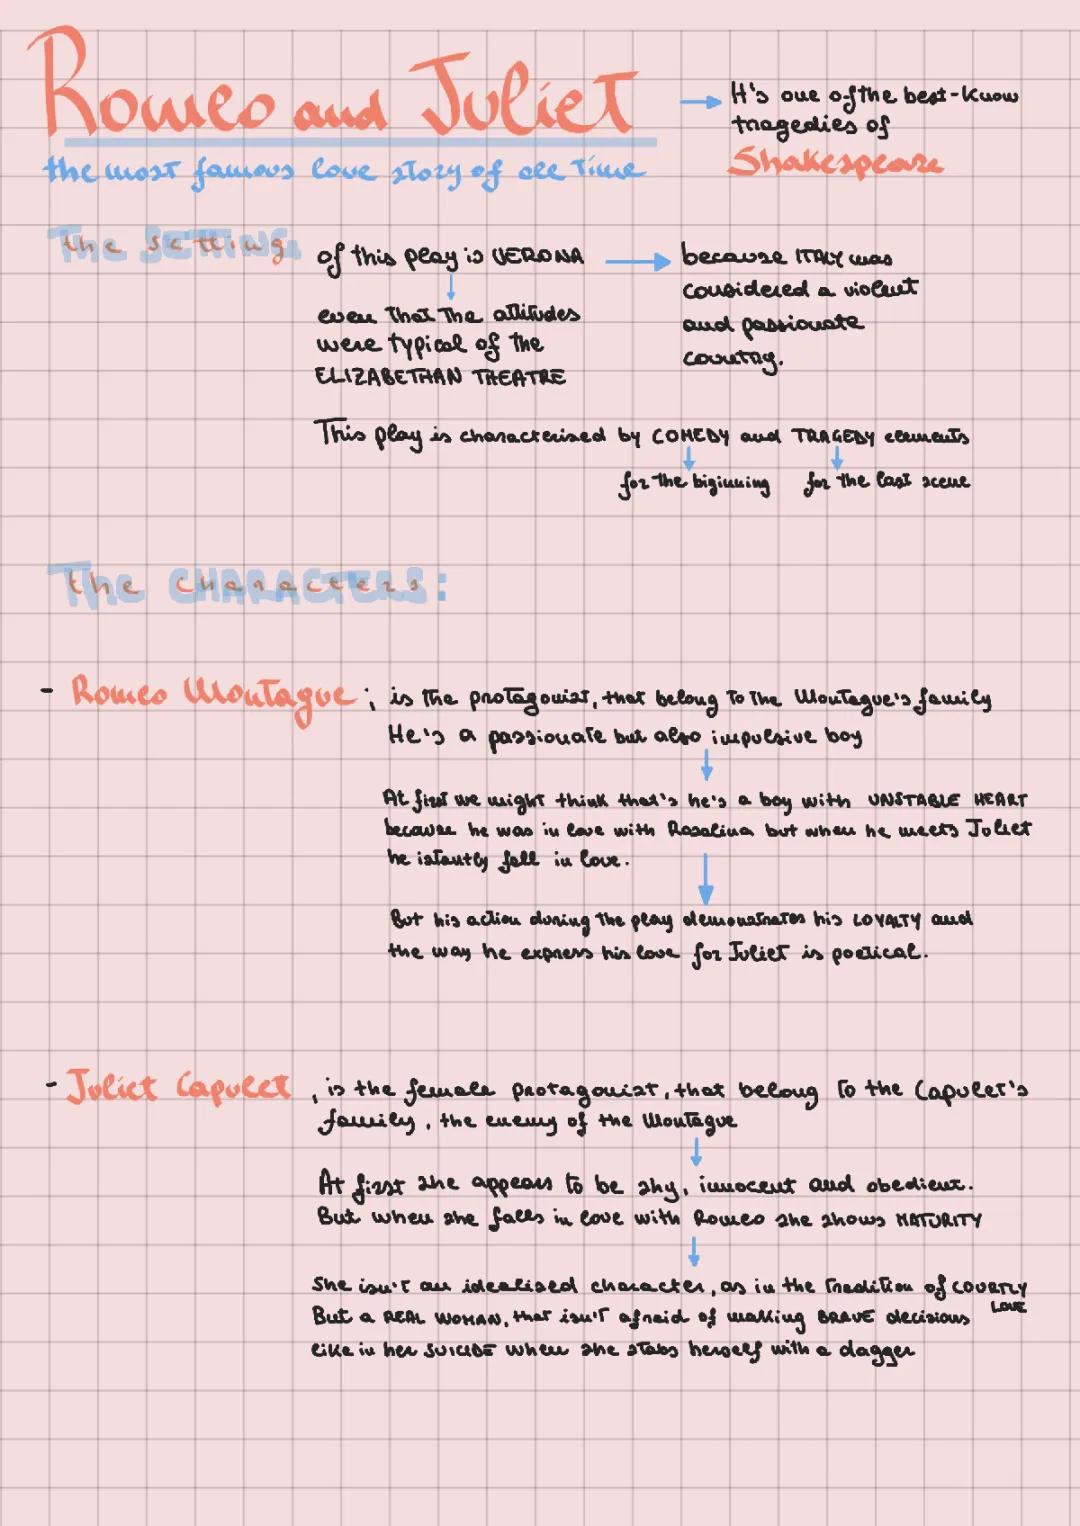 Romeo and Juliet
the most famous love story of all time
It's one of the best-know
tragedies of
Shakespeare
the setting:
of this play is VERONA
because ITALY was
considered a violent
and passionate
country.
even that the attitudes
were typical of the
ELIZABETHAN THEATRE
This play is characterised by COMEDY and TRAGEDY elements
for the biginning
for the last scene
the CHARACTERS:
- Romeo Montague; is the protagonist, that belong to the Montague's family
He's a passionate but also impulsive boy
At first we might think that's he's a boy with UNSTABLE HEART
because he was in love with Rosalina but when he meets Juliet
he istantly fell in love.
But his action during the play demonstrates his LOYALTY and
the way he express his love for Juliet is poetical.
- Juliet Capulet, is the female protagonist, that belong to the Capulet's
family, the enemy of the Montague
At first she appears to be shy, innocent and obedient.
But when she falls in love with Romeo she shows MATURITY
She isn't an idealised character, as in the tradition of COURTLY
LOVE
But a REAL WOMAN, that isn't afraid of making BRAVE decisions
like in her SUICIDE when she stabs herself with a dagger